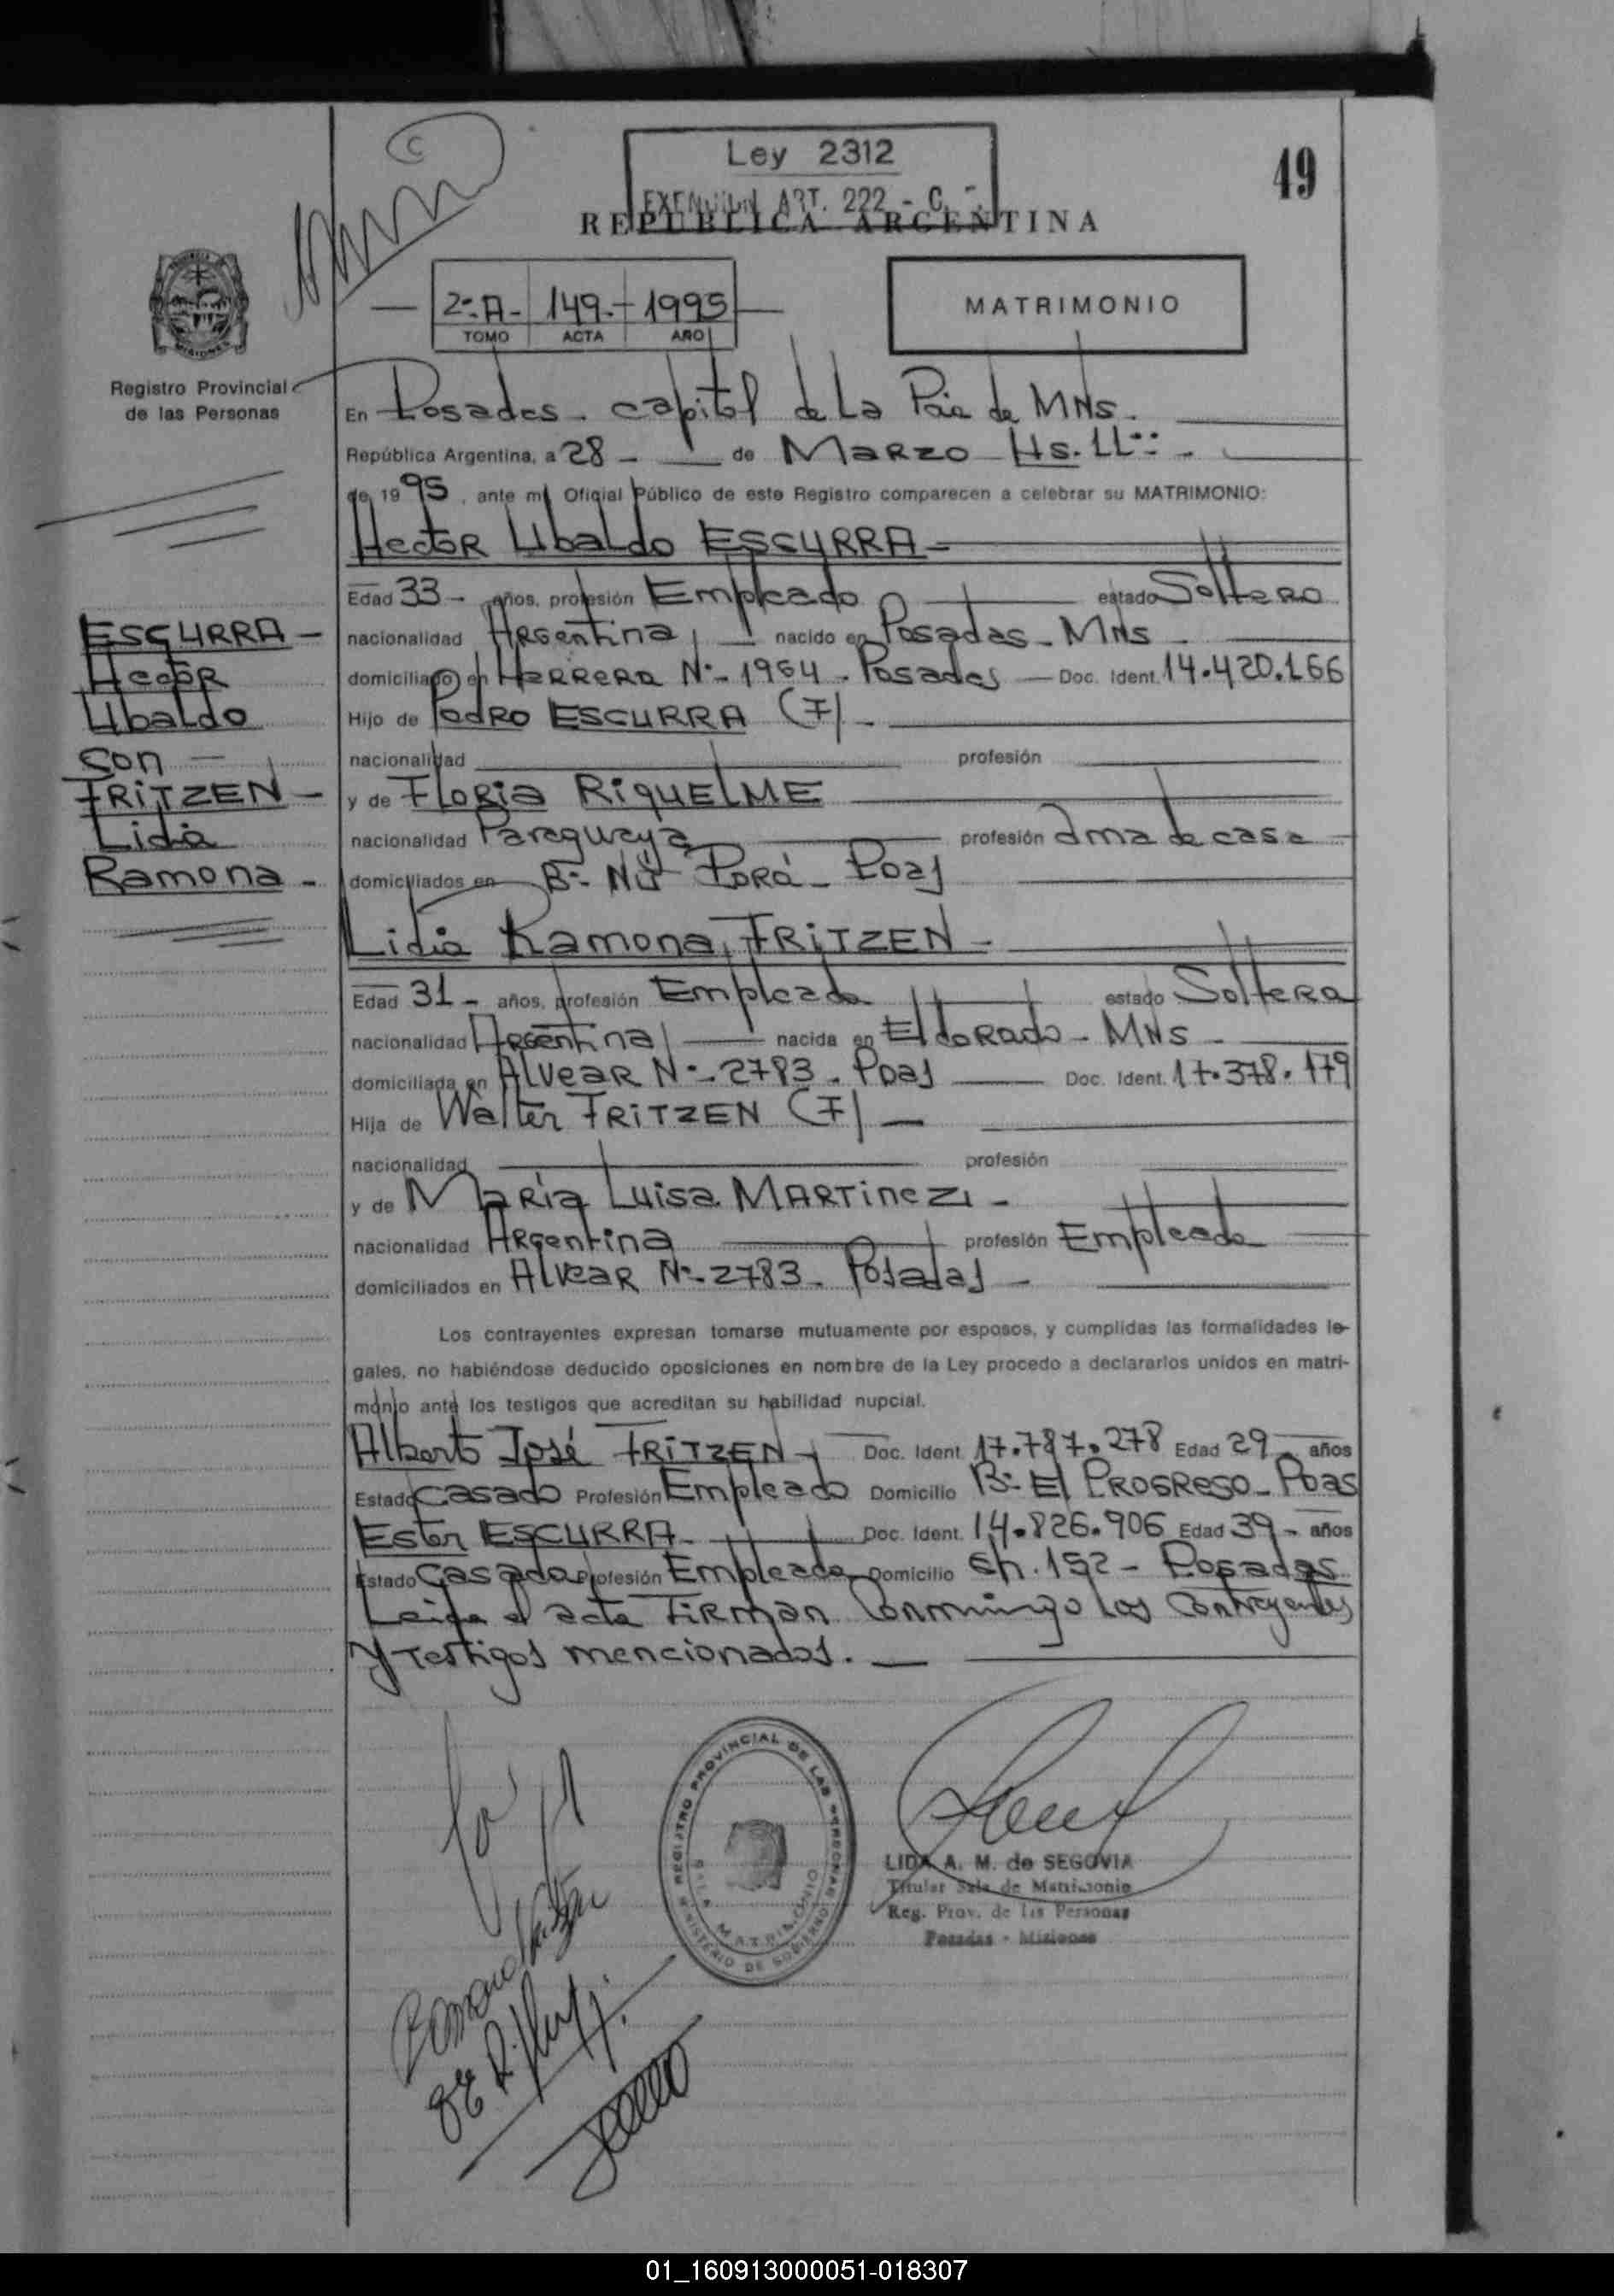 Ley 2312
EXENCION ART. 222 - C.
49
REPUBLICA ARGENTINA
2º A - 149 - 1995
TOMO ACTA AÑO
MATRIMONIO
MISIONES
Registro Provincial
de las Personas
En Posadas - capital de La Pcia de MNs.
República Argentina, a 28 - de Marzo Hs. 11:: -
de 1995, ante mí Oficial Público de este Registro comparecen a celebrar su MATRIMONIO:
Hector Ubaldo ESCURRA -
Edad 33 - años, profesión Empleado estado Soltero
nacionalidad Argentina nacido en Posadas - MNs -
domiciliado en HERRERA Nº - 1964 - Posadas - Doc. Ident. 14.420.166
Hijo de Pedro ESCURRA (F) -
nacionalidad profesión
y de Floria RIQUELME
nacionalidad Paraguaya profesión ama de casa
domiciliados en Bº - Ñu PORÁ - Pdas
Lidia Ramona FRITZEN -
Edad 31 - años, profesión Empleada estado Soltera
nacionalidad Argentina nacida en Eldorado - MNS -
domiciliada en Alvear Nº - 2783 - Pdas Doc. Ident. 17.378.179
Hija de Walter FRITZEN (F) -
nacionalidad profesión
y de María Luisa MARTINEZ -
nacionalidad Argentina profesión Empleada
domiciliados en Alvear Nº - 2783 - Posadas -
Los contrayentes expresan tomarse mutuamente por esposos, y cumplidas las formalidades le-
gales, no habiéndose deducido oposiciones en nombre de la Ley procedo a declararlos unidos en matri-
monio ante los testigos que acreditan su habilidad nupcial.
Alberto José FRITZEN - Doc. Ident. 17.787.278 Edad 29 - años
Estado casado Profesión Empleado Domicilio Bº El PROGRESO - Pdas
Ester ESCURRA - Doc. Ident. 14.826.906 Edad 39 - años
Estado Casada Profesión Empleada Domicilio Ch. 152 - Posadas
Leida el acta FIRMAN Conmingo los Contrayentes
y Testigos mencionados. -
ESCURRA -
Hector
Ubaldo
con -
FRITZEN -
Lidia
Ramona -
REGISTRO PROVINCIAL DE LAS PERSONAS
SALA MATRIMONIO
MINISTERIO DE GOBIERNO
LIDA A. M. de SEGOVIA
Titular Sala de Matrimonio
Reg. Prov. de las Personas
Posadas - Misiones
01_160913000051-018307